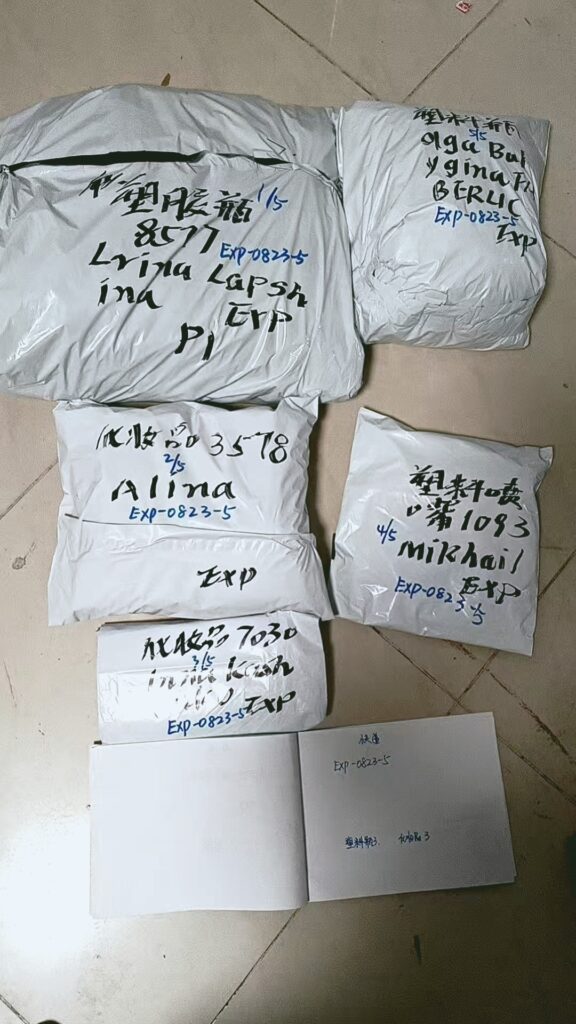 塑胶瓶 1/5
8577 EXP-0823-5
Lrina Lapsh
ina Exp
P1
塑料瓶
5/5
Olga Bul
ygina
BERLIC
EXP-0823-5
Exp
化妆品3578
2/5
Alina
EXP-0823-5
Exp
塑料喷
嘴1093
4/5 Mikhail
Exp
EXP-0823-5
化妆品7030
3/5
Kash
Exp
EXP-0823-5
快递
EXP-0823-5
塑料瓶3 化妆品3